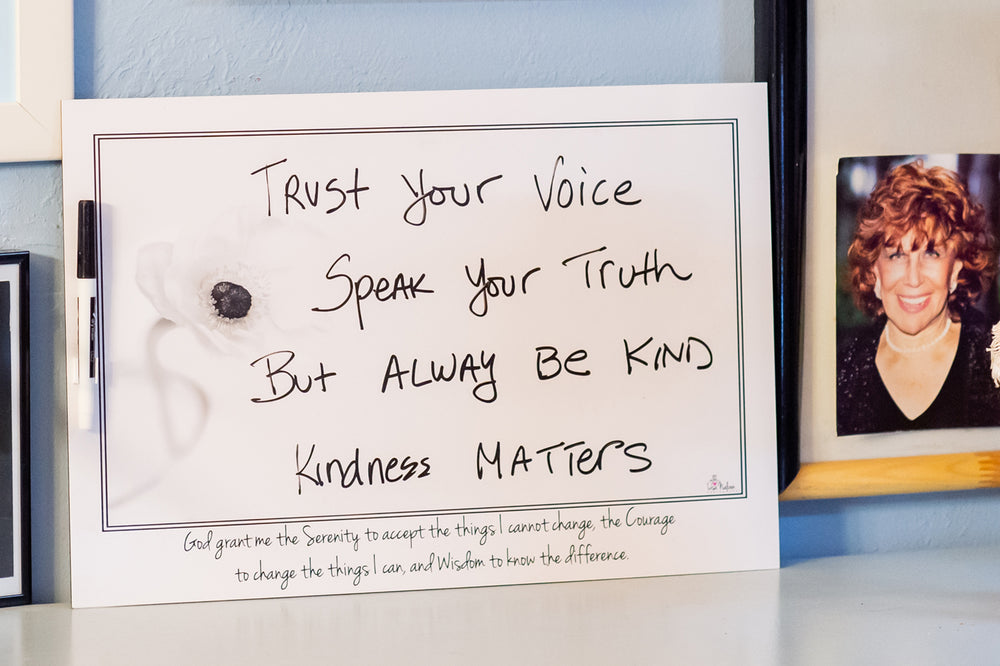 Trust Your Voice
Speak Your Truth
But ALWAY BE KIND
Kindness MATTers
God grant me the Serenity to accept the things I cannot change, the Courage
to change the things I can, and Wisdom to know the difference.